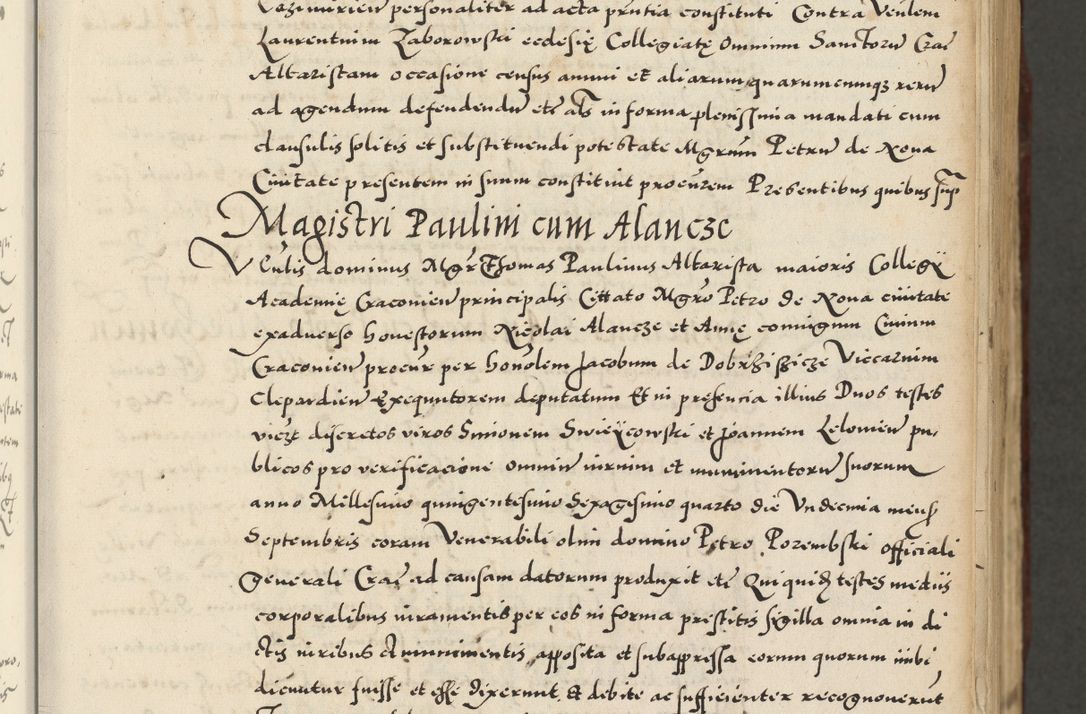 Cazimirien personaliter ad acta prntia constituti Contra Venlem
Laurentium Zaborowski ecclesię Collegiatę Omnium Sanctoru Crac
Altaristam occasione census annui et aliarum quarumcunqz reru
ad agendum defendendu etc als in forma plenissima mandati cum
clausulis solitis et substituendi potestate Mgrum Petru de Noua
Ciuitate presentem in suum constituit procurem Presentibus quibus sup
Magistri Paulini cum Alancze
Venlis dominus Mgr Thomas Paulinus Altarista maioris Collegij
Academię Cracouien principalis Cittato Mgro Petro de Noua ciuitate
exaduerso honestorum Nicolai Alancze et Annę coniugum Ciuium
Cracouien procure per honolem Jacobum de Dobrziszicze Viccarium
Clepardien Exequutorem deputatum Et in presencia illius Duos testes
vidzt discretos viros Simonem Swieijcowski et Joannem Lelowien pu,
blicos pro verificacione omnium iurium et munimentoru suorum
anno Millesimo quingentesimo Sexagesimo quarto die Vndecima mens
Septembris coram Venerabili olim domino Petro Porembski officiali
generali Crac ad causam datorum produxit etc Qui quid testes medijs
corporalibus iuramentis per eos in forma prestitis sigilla omnia in di
ctis iuribus et munimentis apposita et subappressa eorum quorum inibi
dicuntur fuisse et esse dixerunt et debite ac sufficienter recognouerut